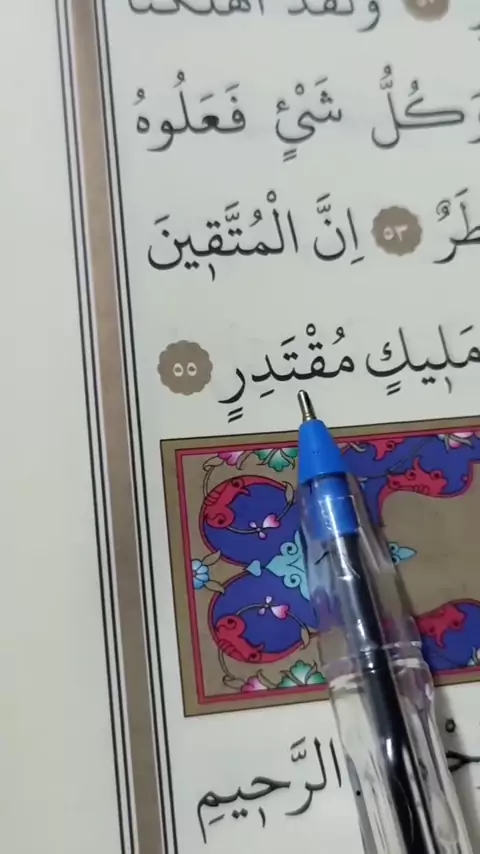 وَلَقَدْ اَهْلَكْنَا
وَكُلُّ شَيْءٍ فَعَلُوهُ
۝٥٣ اِنَّ الْمُتَّقٖينَ
مَلٖيكٍ مُقْتَدِرٍ ۝٥٥
الرَّحٖيمِ